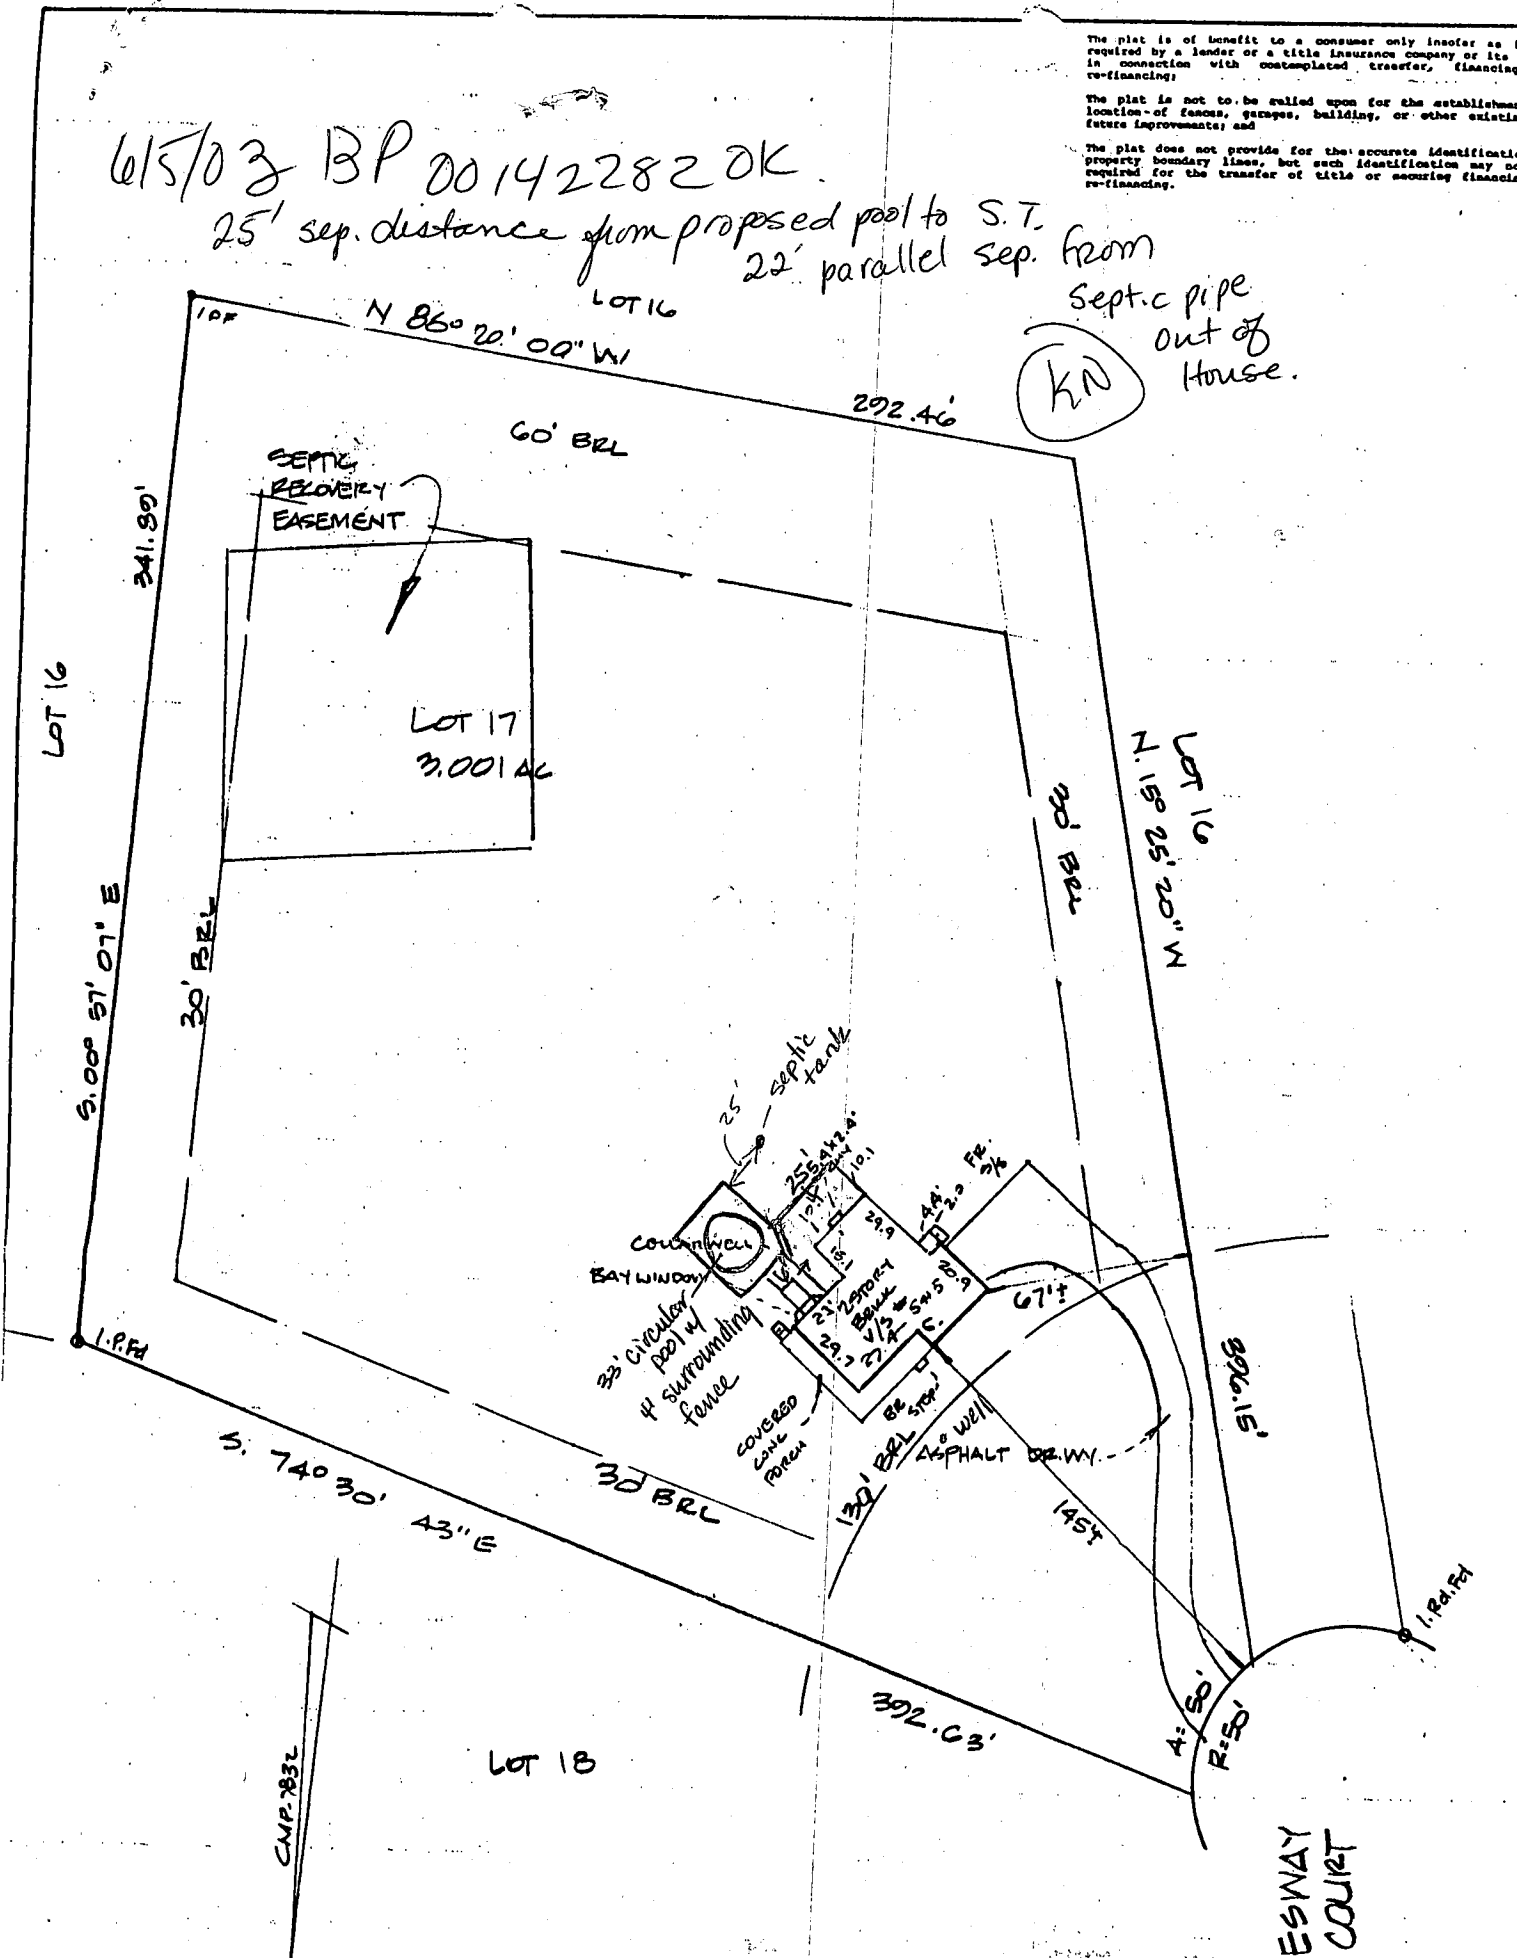 The plat is of benefit to a consumer only insofar as
required by a lender or a title insurance company or its
in connection with contemplated transfer, financing
re-financing;
The plat is not to be relied upon for the
location of fences, garages, building, or other
future improvements; and
The plat does not provide for the accurate
property boundary lines, but such identification may
required for the transfer of title or securing
re-financing.
6/5/03 BP 00142282 OK.
25' sep. distance from proposed pool to S.T.
22' parallel sep. from
septic pipe
out of
House.
KN
LOT 16
IPF
N 86° 20' 00" W
292.46'
60' BRL
SEPTIC
RECOVERY
EASEMENT
341.89'
LOT 16
LOT 17
3.001 AC
LOT 16
N. 15° 25' 20" W
30' BRL
S. 00° 57' 07" E
30' BRL
septic
tank
25'
25
5.4 x 2.4
10.1
FR.
4.4'
2.0
29.9
BAY WINDOW
15'
2 STORY
BRICK
20.9
67'±
23'
29.7
27.4
33' circular
pool w/
4' surrounding
fence
COVERED
CONC
PORCH
BR
STEP
well
130' BRL
ASPHALT DR.WY.
396.15'
I.P.Fd
S. 74° 30' 43" E
30 BRL
145'±
I.Rd.Fd
392.63'
A= 50'
R=50'
LOT 18
CMP-7832
ESWAY
COURT